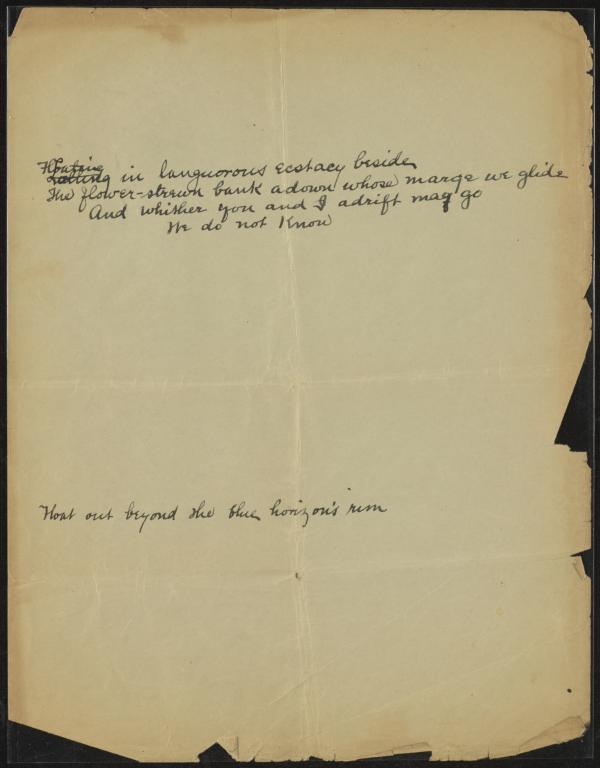 Floating
Lolling in languorous ecstacy beside
The flower-strewn bank adown whose marge we glide
And whither you and I adrift may go
We do not Know
Float out beyond the blue horizon's rim